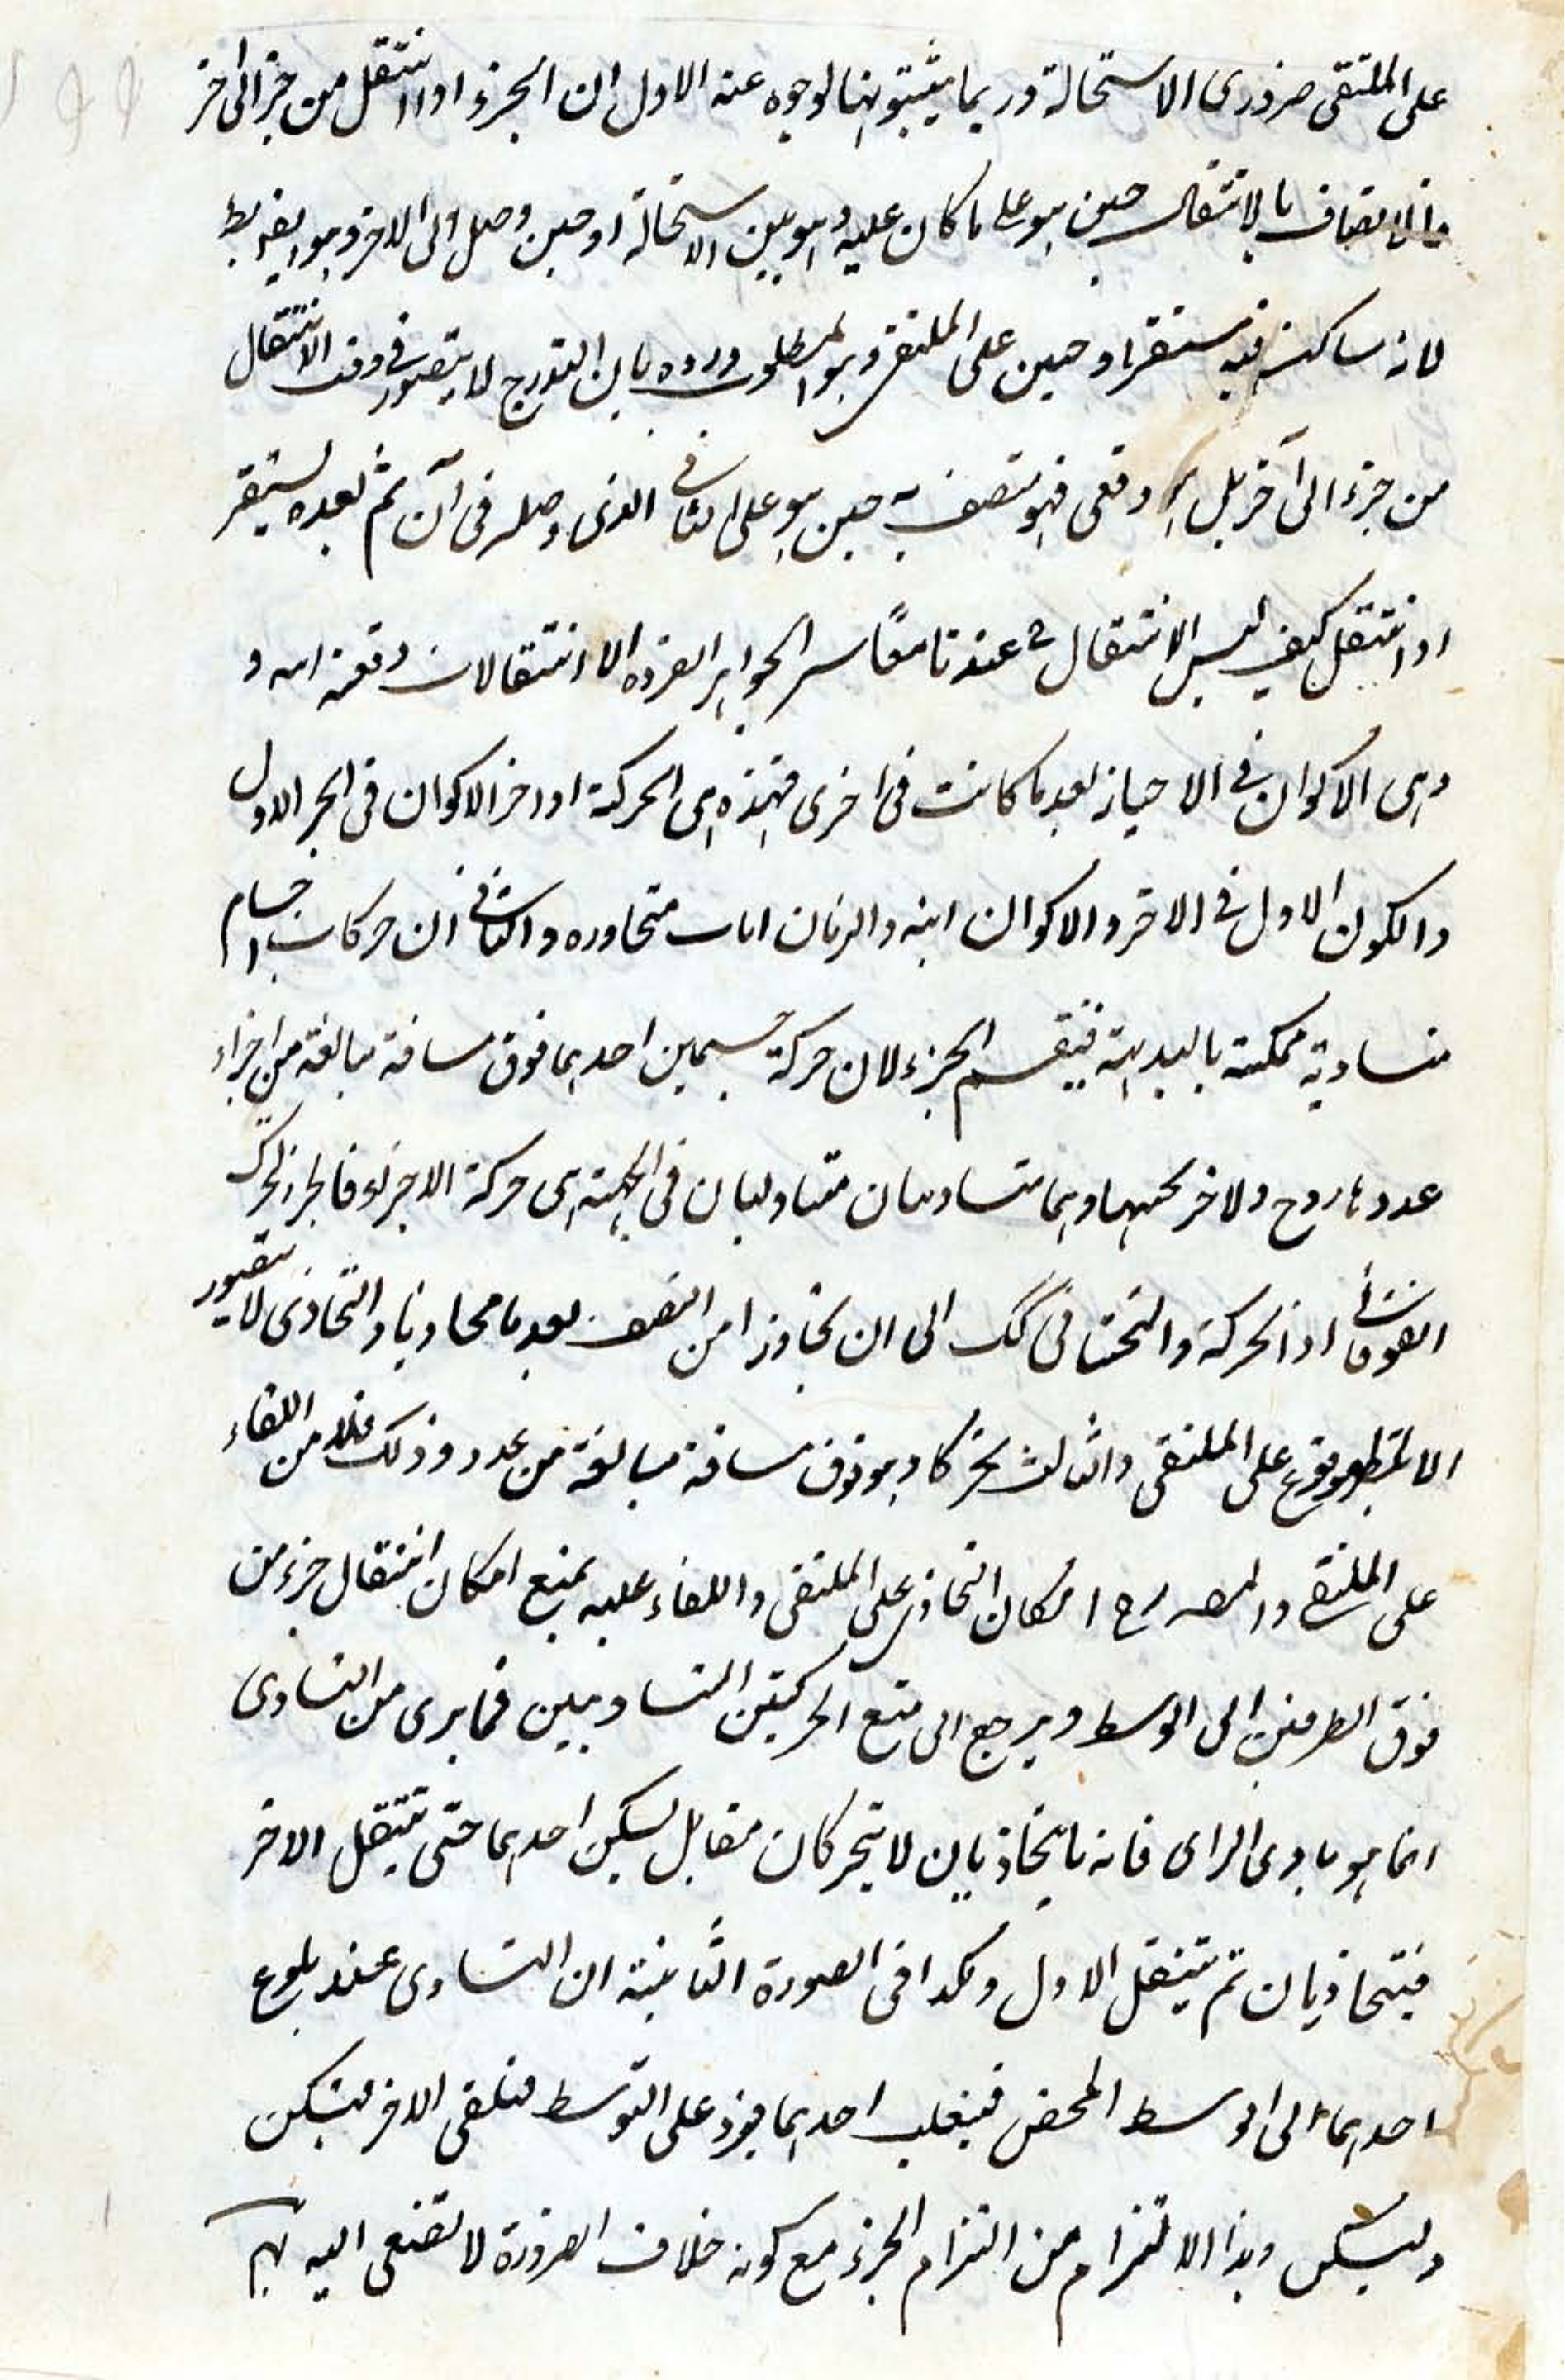 على الملتقى ضرورى الاستحالة وربما يثبتونها لوجوه عنه الاول ان الجزء اذا انتقل من جزء الى اخر
فالاتصاف بالانتقال حين هو على ما كان عليه وهو بين الاستحالة او حين وصل الى الاخر وهو ايضا بط
لانه ساكن فيه مستقرا وحين على الملتقى وهو المطلوب ورده بان التدرج لا يتصور فى وقت الانتقال
من جزء الى آخر بل هو دفعى فهو متصف به حين هو على الثانى الذى وصله فى آن ثم بعده يستقر
او انتقل كيف ليس الانتقال ح عند تامعاسر الجواهر الفرده الا انتقالات دفعية
وهى الاكوان فى الاحياز بعد ما كانت فى اخرى فهذه هى الحركة او اخر الاكوان فى الحيز الاول
والكون الاول فى الاخر والاكوان انيه والزمان انات متجاوره والثانى ان حركات اجسام
متساوية ممكنة بالبديهة فينقسم الجزء لان حركة جسمين احدهما فوق مسافة مبالغة من اجزاء
عددها زوج والاخر تحتها وهما متساويان متبادلان فى الجهة هى حركة الاجزاء فالجزء تحرك
الفوقانى اذا لحركة والتحتانى كك الى ان تجاوزا من النصف بعد ما محاذيا والتحاذى لا يتصور
الا لتبطل وقوع على الملتقى والثالث تحركا وهو فوق مسافة مبالغة من عدد وذلك فلابد من اللقاء
على الملتقى امكان التحاذى على الملتقى واللقاء عليه بمنع امكان انتقال جزء من
فوق الطرفين الى الوسط ويرجع الى منع الحركتين المتساويين فما يرى من التساوى
انما هو بادى الراى فانه ما يتحاذيان لا يتحركان مقابل يسكن احدهما حتى ينتقل الاخر
فيتحاذيان ثم ينتقل الاول وهكذا فى الصورة الثانية ان التساوى عند بلوغ
احدهما الى الوسط المحض فيغلب احدهما فيفوز على التوسط فيلقى الاخر فيسكن
وليسكن وهذا الالتزام من التزام الجزء مع كونه خلاف الضرورة لا تصغى اليه